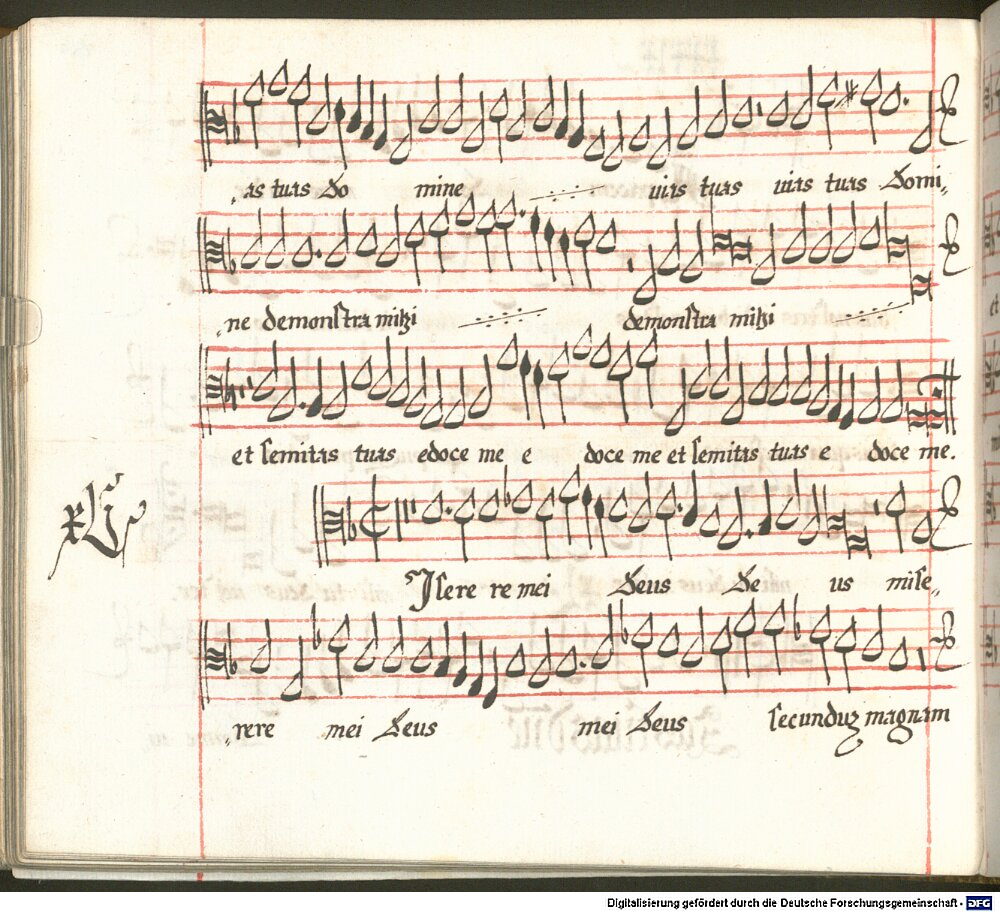 as tuas Do mine vias tuas vias tuas Domi„
„ne demonſtra mihi demonſtra mihi
et ſemitas tuas edoce me e doce me et ſemitas tuas e doce me.
Iſere re mei Deus De us miſe„
„rere mei Deus mei Deus ſecunduz magnam
Digitalisierung gefördert durch die Deutsche Forschungsgemeinschaft - DFG